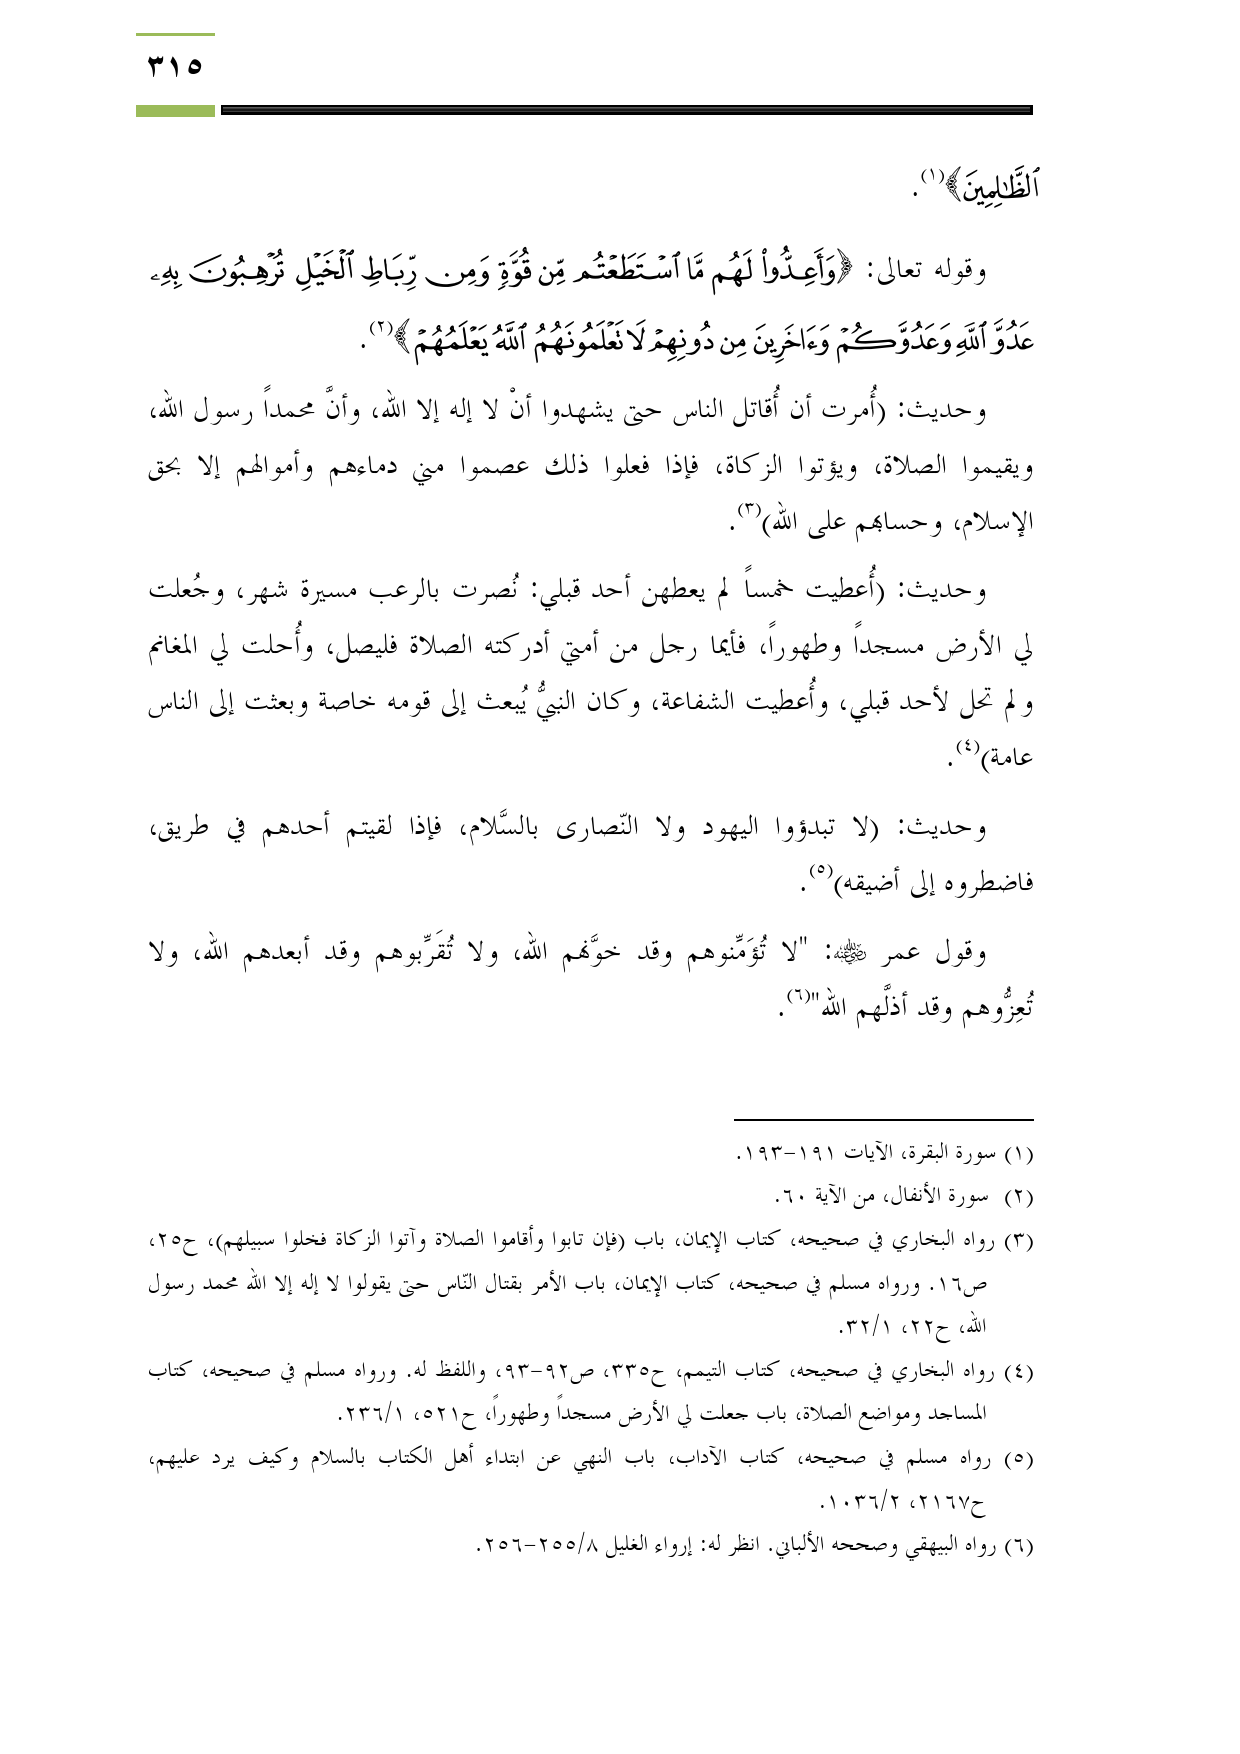 ٣١٥
ٱلظَّٰلِمِينَ﴾(١).
وقوله تعالى: ﴿وَأَعِدُّواْ لَهُم مَّا ٱسۡتَطَعۡتُم مِّن قُوَّةٖ وَمِن رِّبَاطِ ٱلۡخَيۡلِ تُرۡهِبُونَ بِهِۦ
عَدُوَّ ٱللَّهِ وَعَدُوَّكُمۡ وَءَاخَرِينَ مِن دُونِهِمۡ لَا تَعۡلَمُونَهُمُ ٱللَّهُ يَعۡلَمُهُمۡ﴾(٢).
وحديث: (أُمرت أن أُقاتل الناس حتى يشهدوا أنْ لا إله إلا الله، وأنَّ محمداً رسول الله،
ويقيموا الصلاة، ويؤتوا الزكاة، فإذا فعلوا ذلك عصموا مني دماءهم وأموالهم إلا بحق
الإسلام، وحسابهم على الله)(٣).
وحديث: (أُعطيت خمساً لم يعطهن أحد قبلي: نُصرت بالرعب مسيرة شهر، وجُعلت
لي الأرض مسجداً وطهوراً، فأيما رجل من أمتي أدركته الصلاة فليصل، وأُحلت لي المغانم
ولم تحل لأحد قبلي، وأُعطيت الشفاعة، وكان النبيُّ يُبعث إلى قومه خاصة وبعثت إلى الناس
عامة)(٤).
وحديث: (لا تبدؤوا اليهود ولا النّصارى بالسَّلام، فإذا لقيتم أحدهم في طريق،
فاضطروه إلى أضيقه)(٥).
وقول عمر رضي الله عنه: "لا تُؤَمِّنوهم وقد خوَّنهم الله، ولا تُقَرِّبوهم وقد أبعدهم الله، ولا
تُعِزُّوهم وقد أذلَّهم الله"(٦).
(١) سورة البقرة، الآيات ١٩١-١٩٣.
(٢) سورة الأنفال، من الآية ٦٠.
(٣) رواه البخاري في صحيحه، كتاب الإيمان، باب (فإن تابوا وأقاموا الصلاة وآتوا الزكاة فخلوا سبيلهم)، ح٢٥،
ص١٦. ورواه مسلم في صحيحه، كتاب الإيمان، باب الأمر بقتال النّاس حتى يقولوا لا إله إلا الله محمد رسول
الله، ح٢٢، ٣٢/١.
(٤) رواه البخاري في صحيحه، كتاب التيمم، ح٣٣٥، ص٩٢-٩٣، واللفظ له. ورواه مسلم في صحيحه، كتاب
المساجد ومواضع الصلاة، باب جعلت لي الأرض مسجداً وطهوراً، ح٥٢١، ٢٣٦/١.
(٥) رواه مسلم في صحيحه، كتاب الآداب، باب النهي عن ابتداء أهل الكتاب بالسلام وكيف يرد عليهم،
ح٢١٦٧، ١٠٣٦/٢.
(٦) رواه البيهقي وصححه الألباني. انظر له: إرواء الغليل ٢٥٥/٨-٢٥٦.